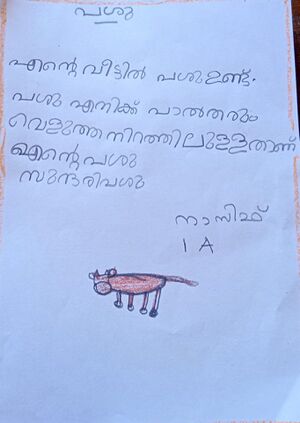 പശു
എന്റെ വീട്ടിൽ പശു ഉണ്ട്.
പശു എനിക്ക് പാൽതരും
വെളുത്ത നിറത്തിലുള്ളതാണ്
എന്റെ പശു
സുന്ദരിപശു
നാസിഫ്
1 A